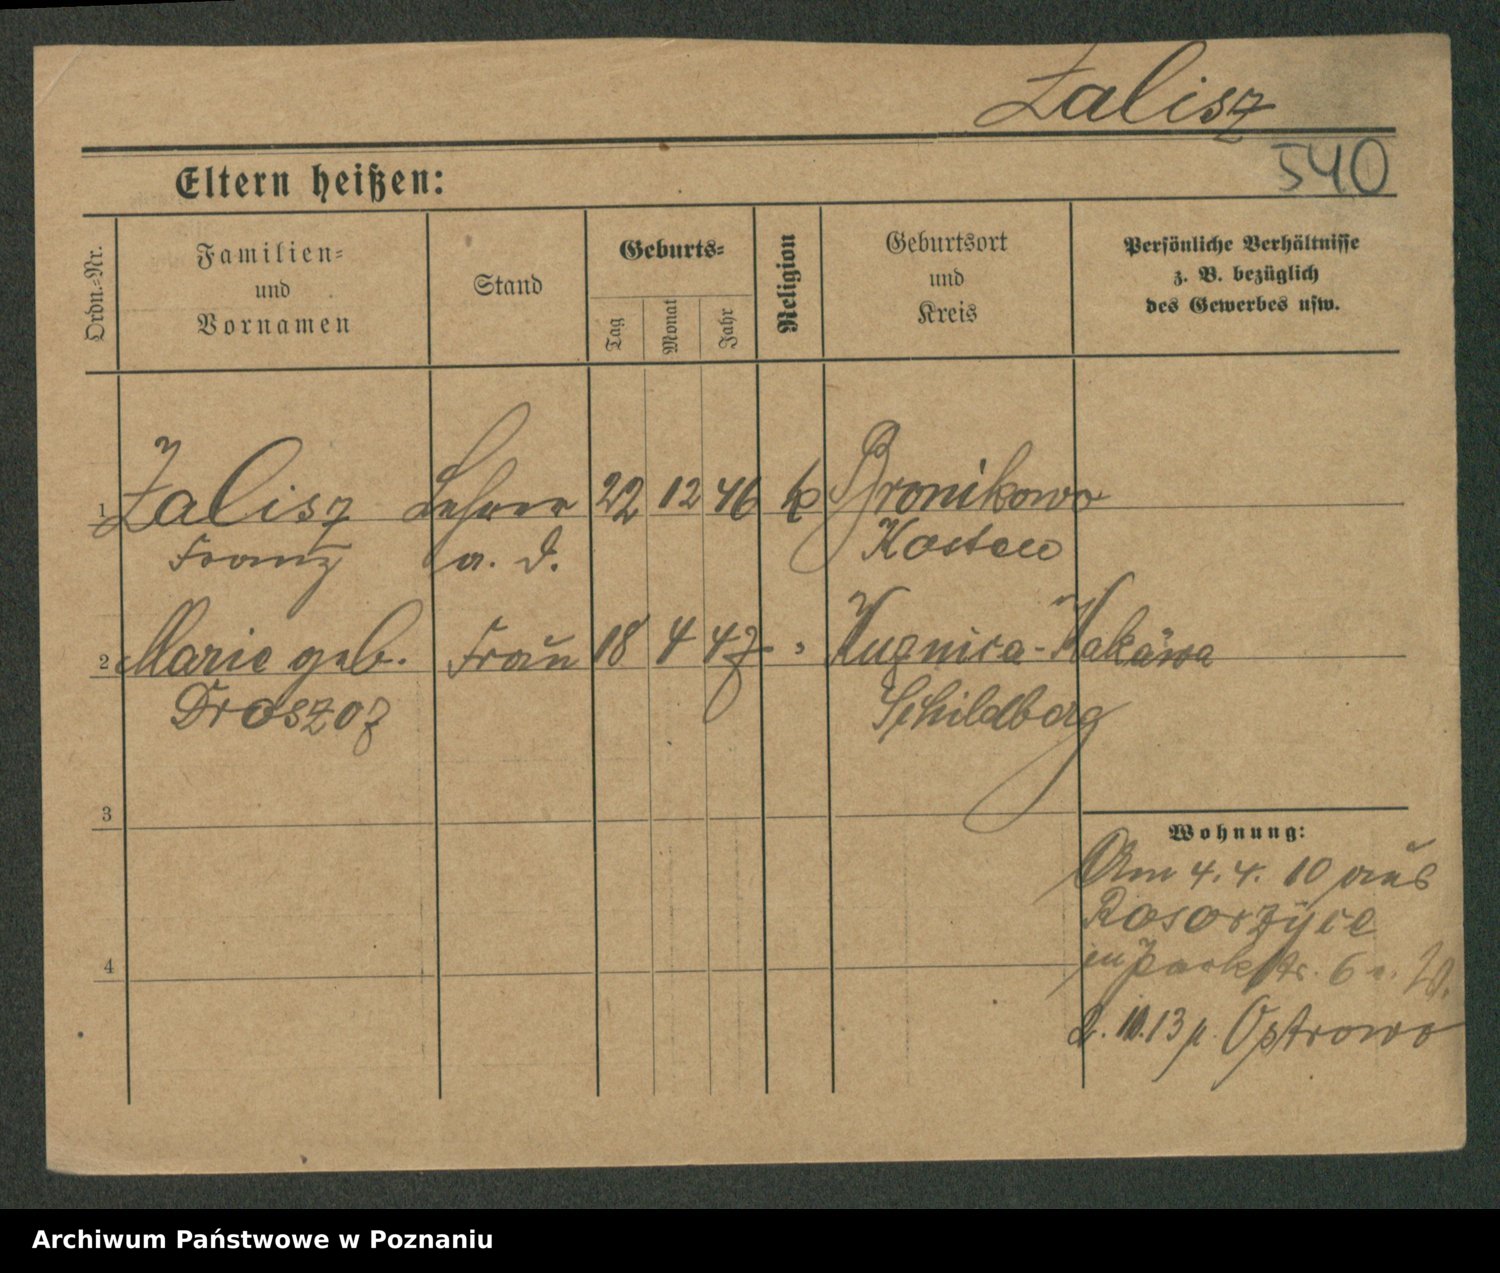 Zalisz
540
Eltern heißen:
Ordn.-Nr.
Familien-
und
Vornamen
Stand
Geburts-
Tag
Monat
Jahr
Religion
Geburtsort
und
Kreis
Persönliche Verhältnisse
z. B. bezüglich
des Gewerbes usw.
1 Zalisz Lehrer 22 12 46 k Bronikowo
Franz a. D. Kosten
2 Marie geb. Frau 18 4 47 " Kuźnica-
Droszoz Schildberg
3
Wohnung:
Am 4. 4. 10 aus
4
Parkstr. 6
2. 10. 13 p. Ostrowo
Archiwum Państwowe w Poznaniu